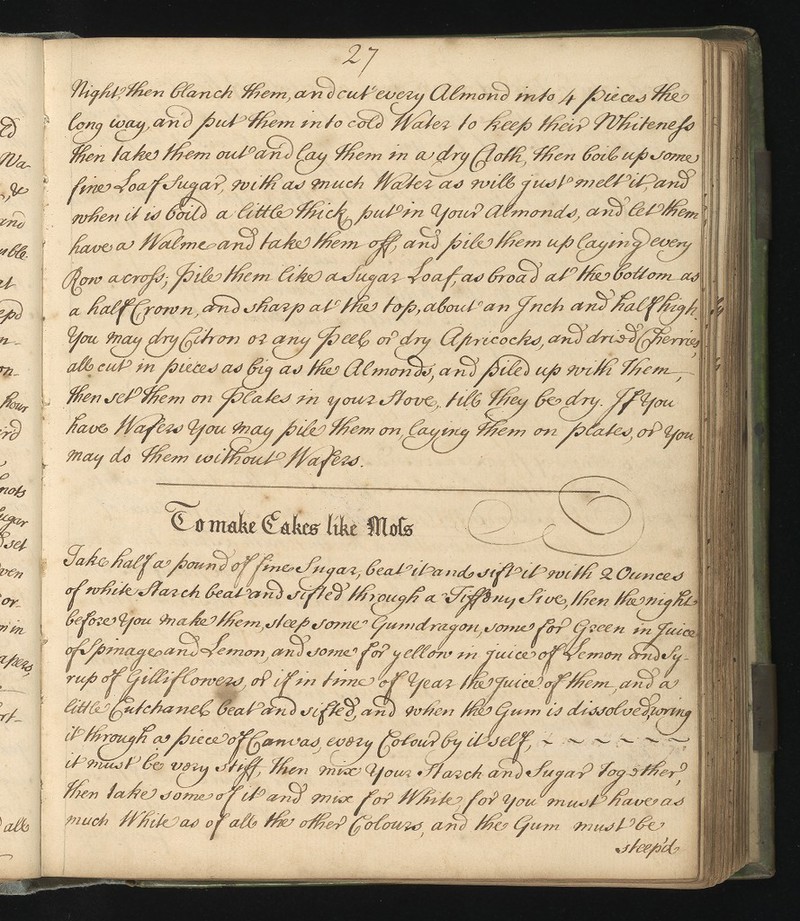 27
Night, then blanch them, and cut every Almond into 4 pieces the
long way, and put them into cold Water to keep their Whiteness
then take them out and lay them in a dry Cloth, then boil up some
fine Loaf Sugar, with as much Water as will just melt it, and
when it is boild a little thick, put in your Almonds, and let them
have a Walme and take them off, and pile them up laying every
Row across; pile them like a Sugar Loaf, as broad at the bottom as
a half Crown, and sharp at the top, about an Inch and half high,
You may dry Citron or any Peel or dry Apricocks, and dried Cherries,
all cut in pieces as big as the Almonds, and piled up with them,
then set them on Plates in your Stove, till they be dry. If You
have Wafers You may pile them on, laying them on plates, or You
may do them without Wafers.
To make Cakes like Moss
Take half a pound of fine Sugar, beat it and sift it with 2 Ounces
of white Starch beat and sifted through a Tiffeny Sive, then the night
before You make them, steep some Gumdragon, some for Green in Juice
of Spinage and Lemon, and some for yellow in juice of Lemon and Sy-
rup of Gilliflowers, or if in time of Year the Juice of them, and a
little Cutchanel beat and sifted, and when the Gum is dissolved, wring
it through a piece of Canvas, every Colour by it self, ~ ~ ~ ~ ~ ~
it must be very stiff, then mix Your Starch and Sugar together,
then take some of it and mix for White, for you must have as
much White as of all the other Colours, and the Gum must be
steep'd
ed
Wa-
, &
and
able
at
epd
n-
on-
hour
ird
knots
Sugar
set
ven
or
n in
afers
rt-
all